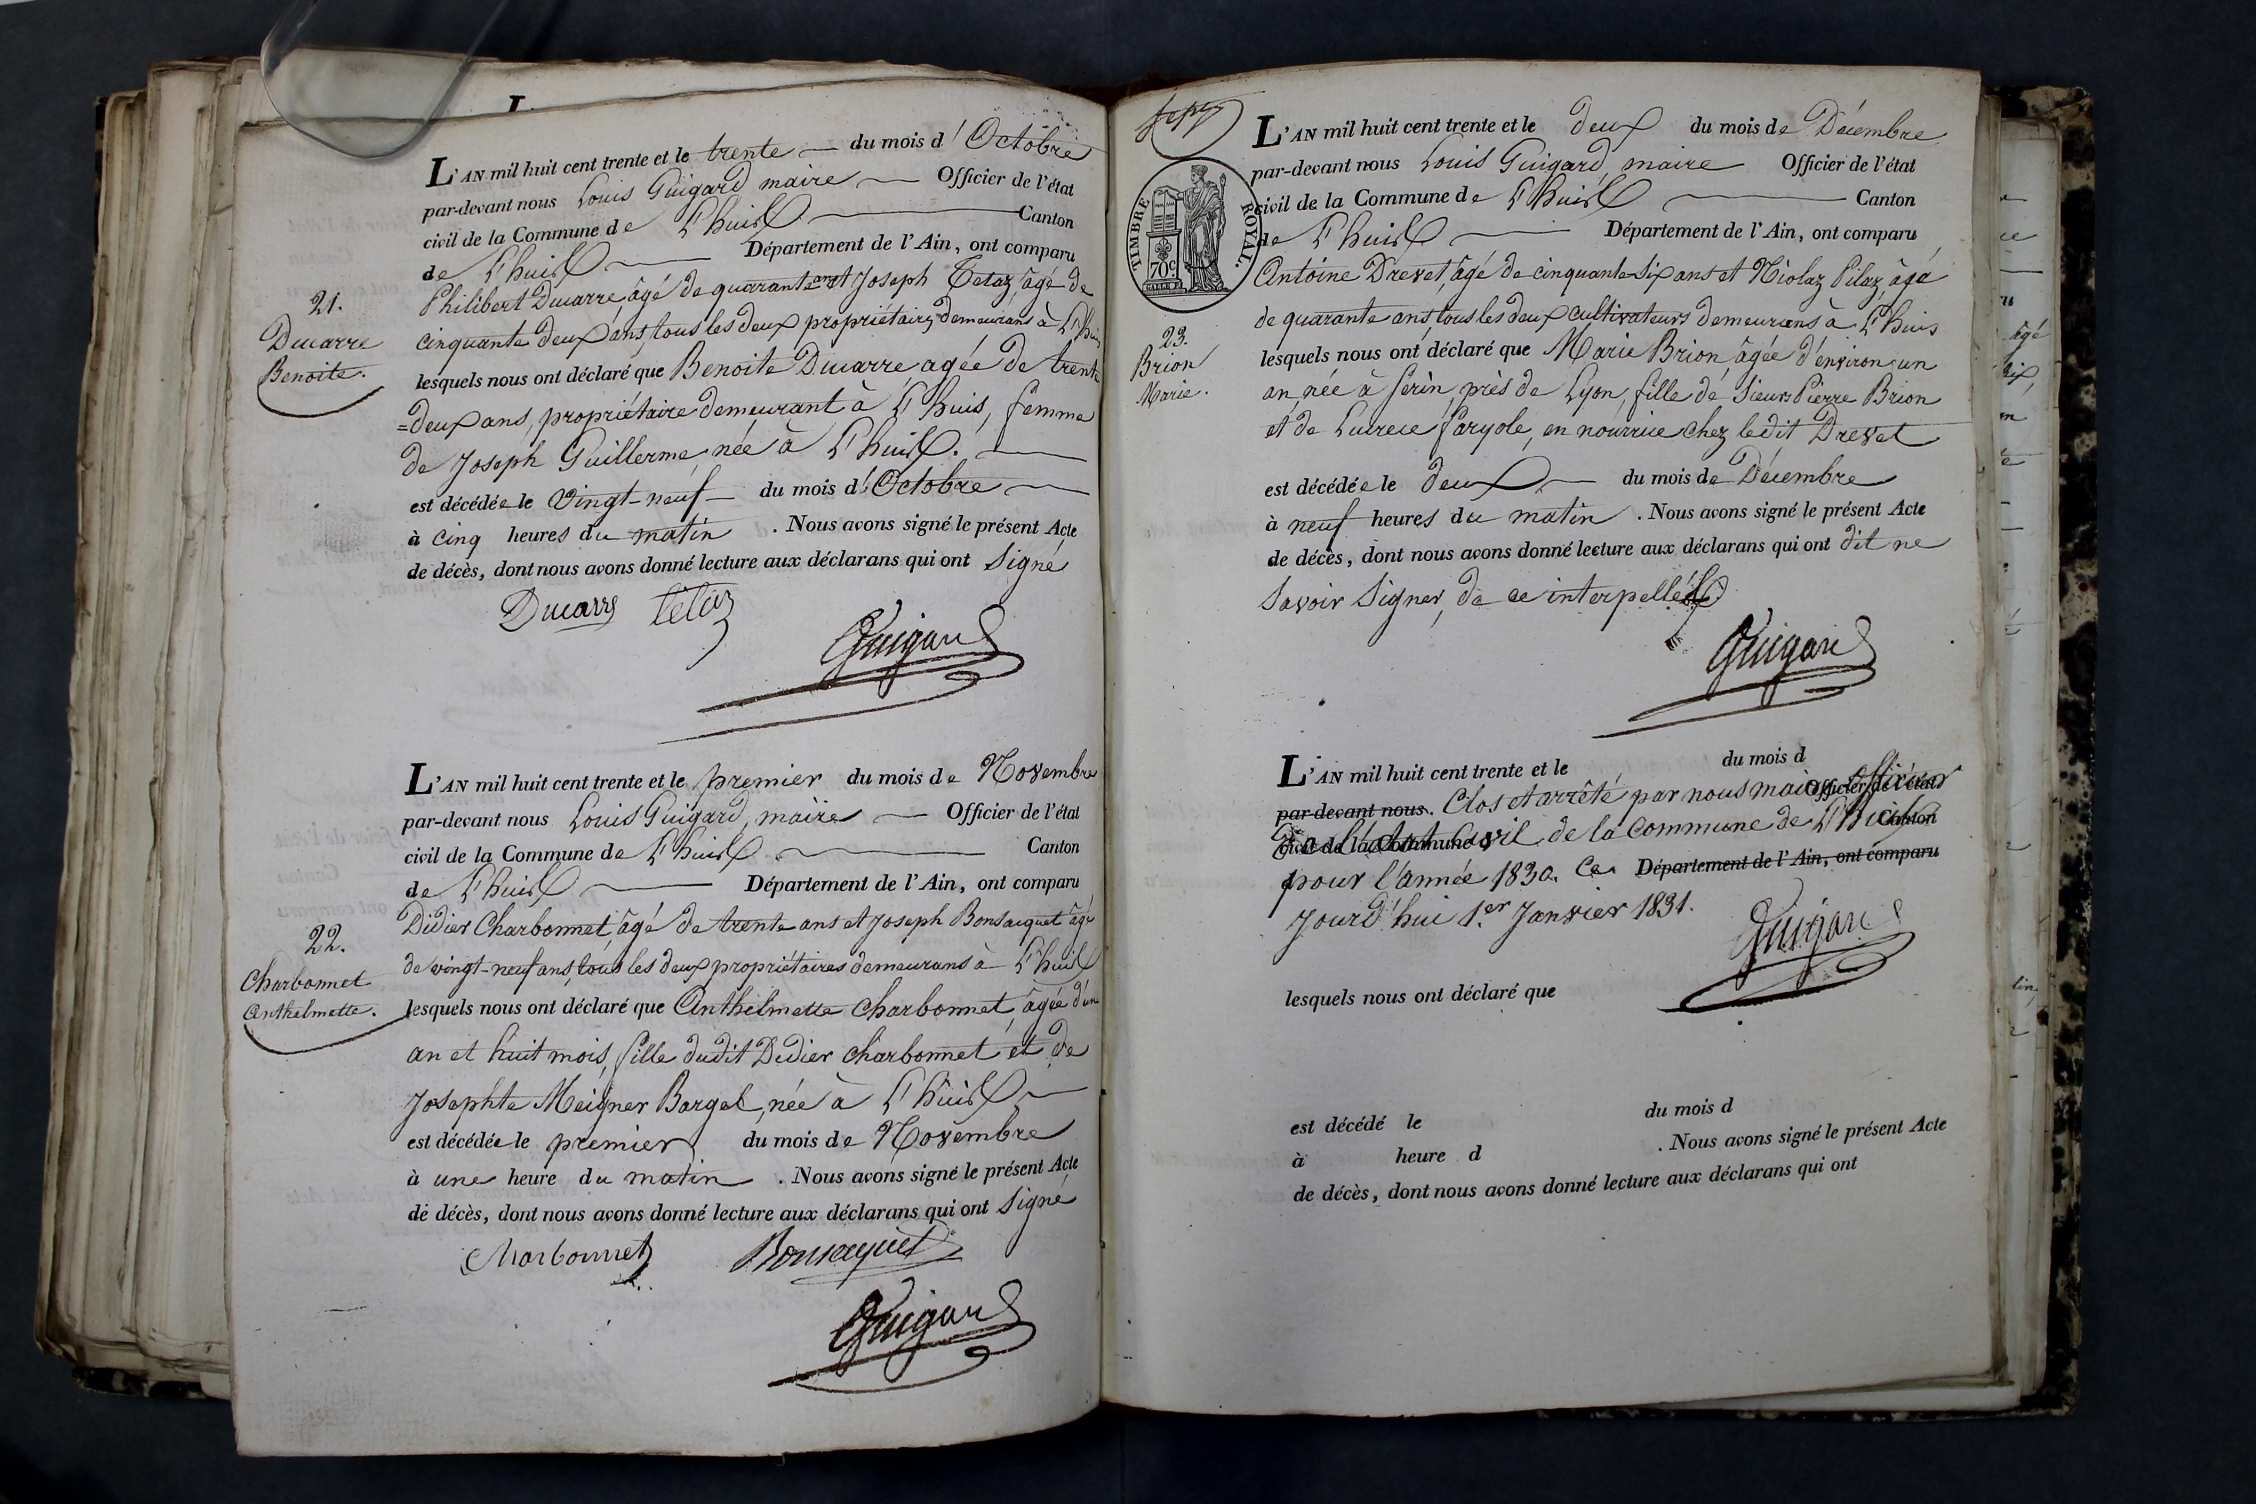 L'AN mil huit cent trente et le trente du mois d'Octobre
par-devant nous Louis Guigard maire Officier de l'état
civil de la Commune de L'huis Canton
de L'huis Département de l'Ain, ont comparu
Philibert Ducarre, âgé de quarante ans et Joseph Tetaz, âgé de
cinquante deux ans, tous les deux propriétaires demeurans à L'huis
lesquels nous ont déclaré que Benoite Ducarre, agée de trente
=deux ans, propriétaire demeurant à L'huis, femme
de Joseph Guillerme née à L'huis.
est décédée le vingt-neuf du mois d'Octobre
à cinq heures du matin. Nous avons signé le présent Acte
de décès, dont nous avons donné lecture aux déclarans qui ont signé
21.
Ducarre
Benoite.
Ducarre Tetaz
Guigard
L'AN mil huit cent trente et le premier du mois de Novembre
par-devant nous Louis Guigard, maire Officier de l'état
civil de la Commune de L'huis Canton
de L'huis Département de l'Ain, ont comparu
Didier Charbonnet, âgé de trente ans et Joseph Bonsacquet âgé
de vingt-neuf ans, tous les deux propriétaires demeurans à L'huis
lesquels nous ont déclaré que Anthelmette Charbonnet, âgée d'un
an et huit mois, fille dudit Didier Charbonnet et de
Josephte Meigner Bargel, née à L'huis
est décédée le premier du mois de Novembre
à une heure du matin. Nous avons signé le présent Acte
de décès, dont nous avons donné lecture aux déclarans qui ont signé
22.
Charbonnet
Anthelmette.
Charbonnet Bonsacquet
Guigard
TIMBRE ROYAL.
70c
L'AN mil huit cent trente et le deux du mois de Décembre
par-devant nous Louis Guigard, maire Officier de l'état
civil de la Commune de L'huis Canton
de L'huis Département de l'Ain, ont comparu
Antoine Drevet, âgé de cinquante six ans et Niolaz Pilaz, âgé
de quarante ans, tous les deux cultivateurs demeurans à L'huis
lesquels nous ont déclaré que Marie Brion, âgée d'environ un
an, née à Serin, près de Lyon, fille de Sieur Pierre Brion
et de Lucrece Faryole, en nourrice chez ledit Drevet
est décédée le deux du mois de Décembre
à neuf heures du matin. Nous avons signé le présent Acte
de décès, dont nous avons donné lecture aux déclarans qui ont dit ne
savoir signer, de ce interpellés.
23.
Brion
Marie.
Guigard
L'AN mil huit cent trente et le du mois d
par devant nous. Clos et arrêté par nous maire Officier Officier de l'état
civil de la Commune d de l'état Civil de la Commune de L'huis Canton
pour l'année 1830. Ce Département de l'Ain, ont comparu
Jourd'hui 1.er Janvier 1831.
Guigard
lesquels nous ont déclaré que
est décédé le du mois d
à heure d. Nous avons signé le présent Acte
de décès, dont nous avons donné lecture aux déclarans qui ont